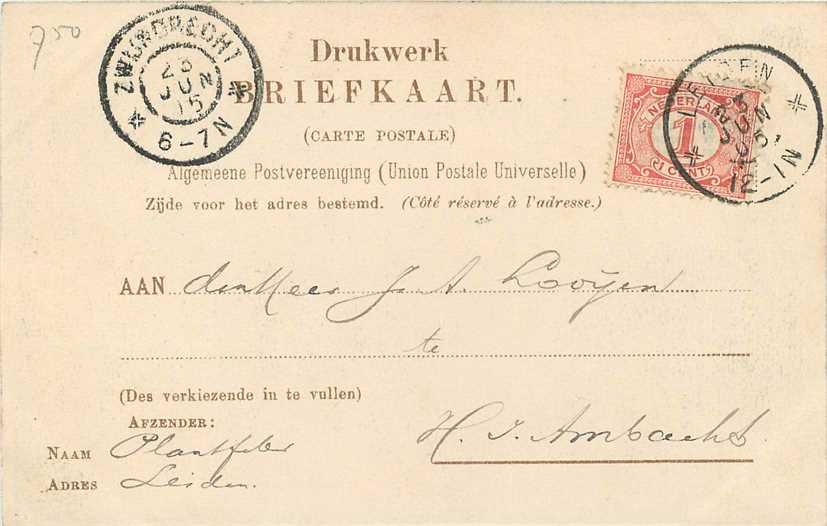 750
ZWIJNDRECHT
23
JUN
15
6-7N
Drukwerk
BRIEFKAART.
(CARTE POSTALE)
Algemeene Postvereeniging (Union Postale Universelle)
Zijde voor het adres bestemd. (Côté réservé à l'adresse.)
NEDERLAND
1
1 CENT
JUN
12-1N
AAN den Heer J. A. Looijen
te
H. I. Ambacht.
(Des verkiezende in te vullen)
AFZENDER:
NAAM
ADRES Leiden.